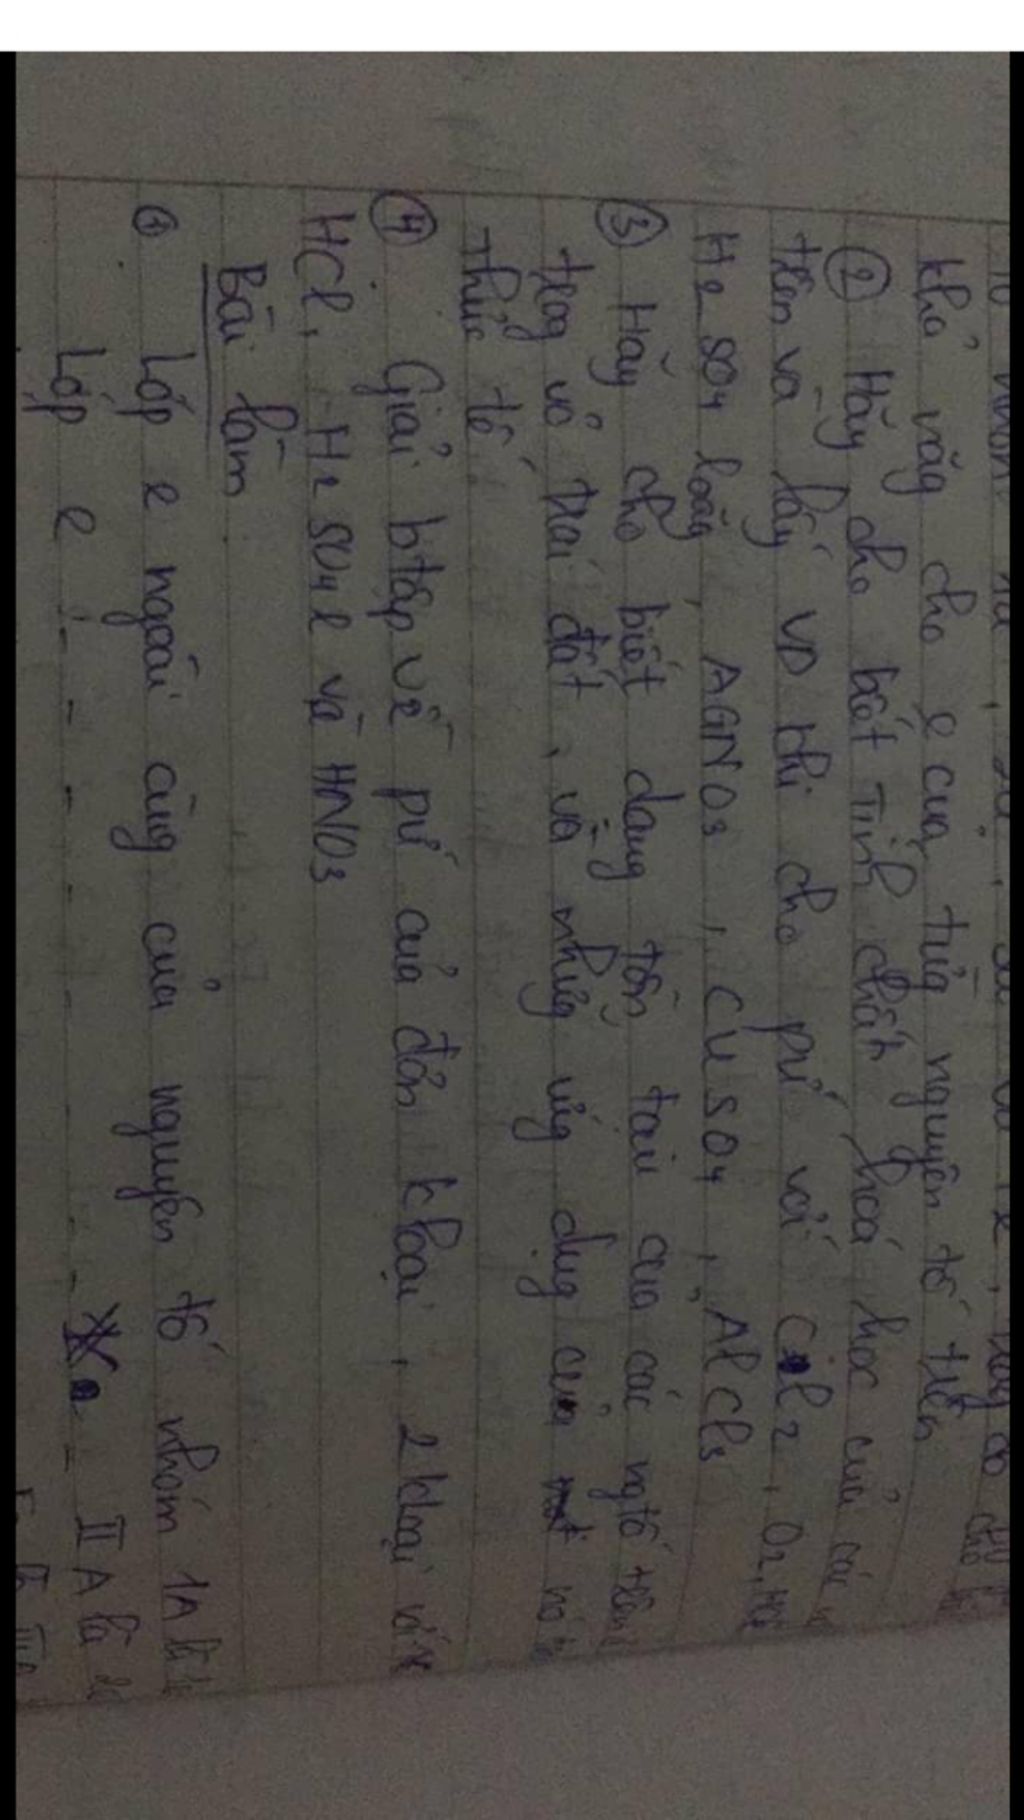 khả năg cho e của từg nguyên tố trên
② Hãy cho biết Tính chất hoá học của các
trên và lấy VD khi cho pứ với Cl2, O2,
H2SO4 loãg, AGNO3, CuSO4, AlCl3
③ Hãy cho biết dạng tồn tại của các ngtố trên
trog vỏ trái đất, và nhữg ứg dụg của nó
thực tế
④ Giải btập về pứ của đơn kloại, 2 kloại với
HCl, H2SO4l và HNO3
Bài làm
① Lớp e ngoài cùg của nguyên tố nhóm 1A là
Lớp e - - - - - - IIA là